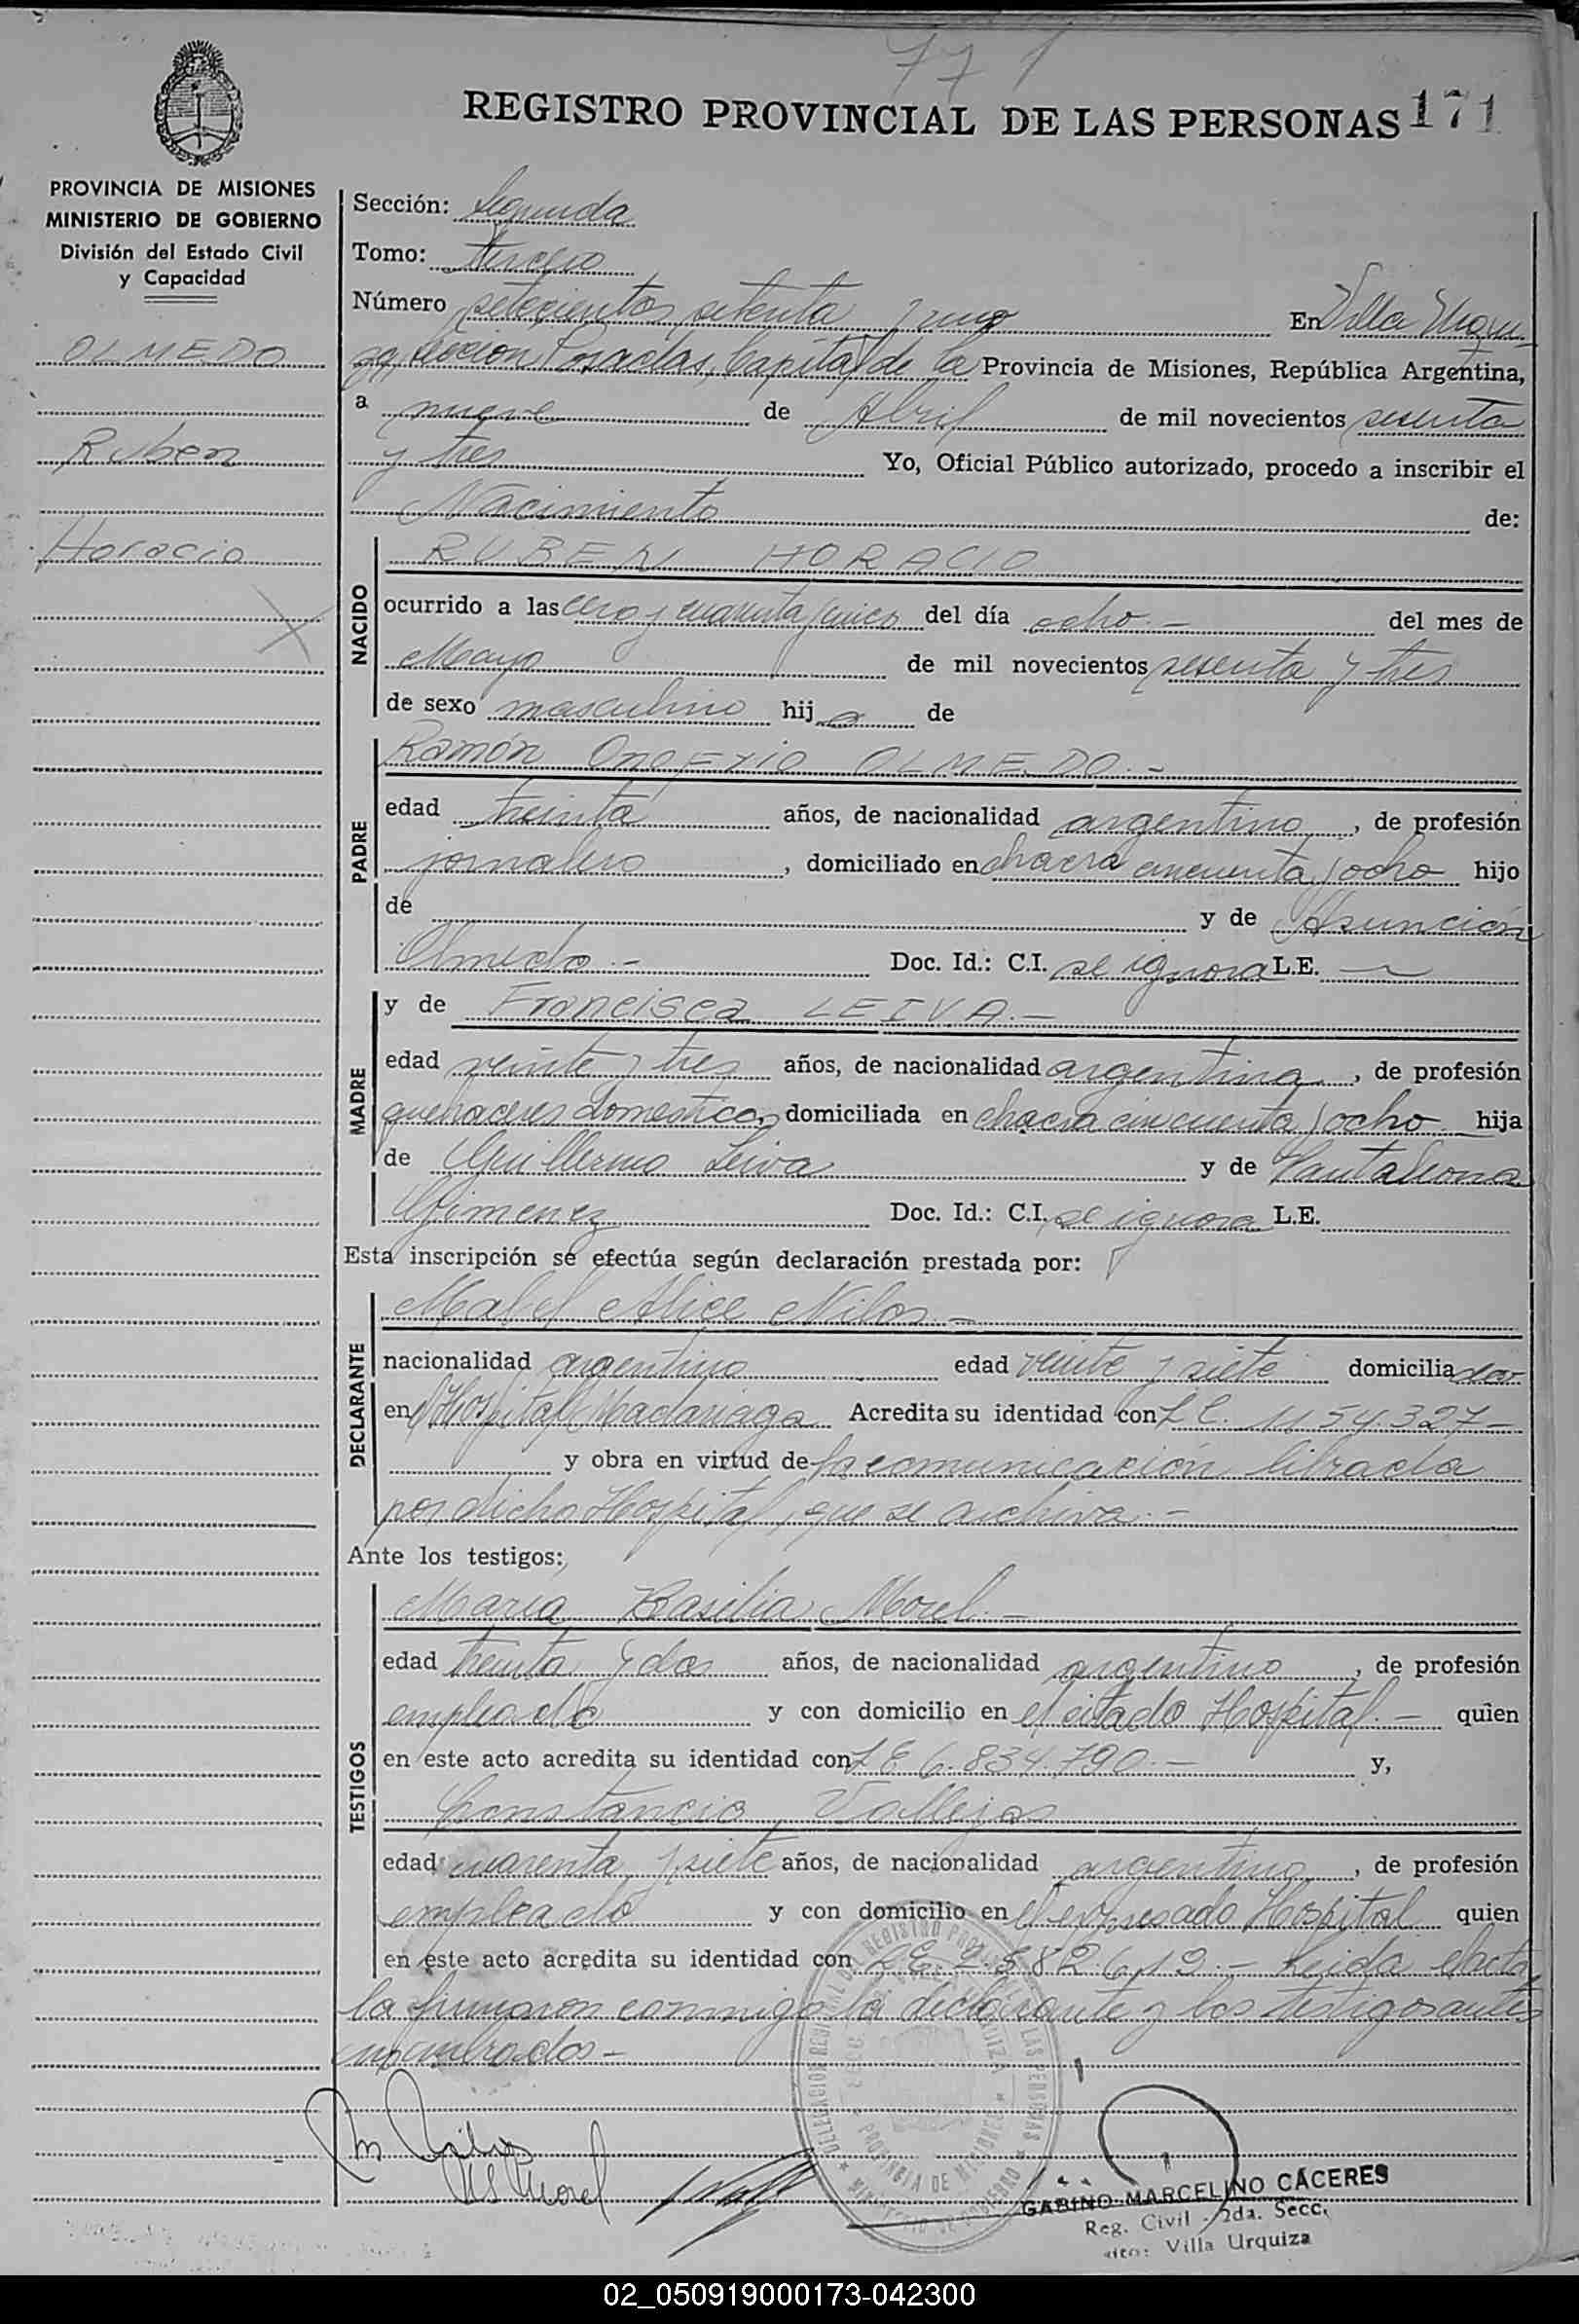 771
REGISTRO PROVINCIAL DE LAS PERSONAS 171
PROVINCIA DE MISIONES
MINISTERIO DE GOBIERNO
División del Estado Civil
y Capacidad
OLMEDO
Ruben
Horacio
Sección: Segunda
Tomo: tercero
Número setecientos setenta y uno En Villa Urqui-
za, sección Posadas, Capital de la Provincia de Misiones, República Argentina,
a nueve de Abril de mil novecientos sesenta
y tres Yo, Oficial Público autorizado, procedo a inscribir el
Nacimiento de:
NACIDO
RUBEN HORACIO
ocurrido a las cero y cuarenta y cinco del día ocho.- del mes de
Mayo de mil novecientos sesenta y tres
de sexo masculino hijo de
PADRE
Ramón Onofrio OLMEDO.-
edad treinta años, de nacionalidad argentino, de profesión
jornalero, domiciliado en chacra cincuenta y ocho hijo
de y de Asunción
Olmedo.- Doc. Id.: C.I. se ignora L.E.
MADRE
y de Francisca LEIVA.-
edad veinte y tres años, de nacionalidad argentina, de profesión
quehaceres domesticos, domiciliada en chacra cincuenta y ocho hija
de Guillermo Leiva y de Pantaleona
Gimenez Doc. Id.: C.I. se ignora L.E.
Esta inscripción se efectúa según declaración prestada por:
DECLARANTE
Mabel Alice Nilos.-
nacionalidad argentina edad veinte y siete domiciliada
en el Hospital Madariaga Acredita su identidad con L.C. 1154.327-
y obra en virtud de la comunicación librada
por dicho Hospital, que se archiva.-
Ante los testigos:
TESTIGOS
Maria Basilia Morel.-
edad treinta y dos años, de nacionalidad argentino, de profesión
empleada y con domicilio en el citado Hospital.- quien
en este acto acredita su identidad con L E 6.834.790.- y,
Constancio Vallejos
edad cuarenta y siete años, de nacionalidad argentino, de profesión
empleado y con domicilio en el expresado Hospital quien
en este acto acredita su identidad con LE. 2.582.619.- Leida el acta
la firmaron conmigo la declarante y los testigos antes
nombrados-
DELEGACION REGISTRO PROVINCIAL DE LAS PERSONAS
PROVINCIA DE MISIONES
MINISTERIO DE GOBIERNO
MS Morel
GABINO MARCELINO CÁCERES
Reg. Civil - 2da. Secc.
Villa Urquiza
02_050919000173-042300